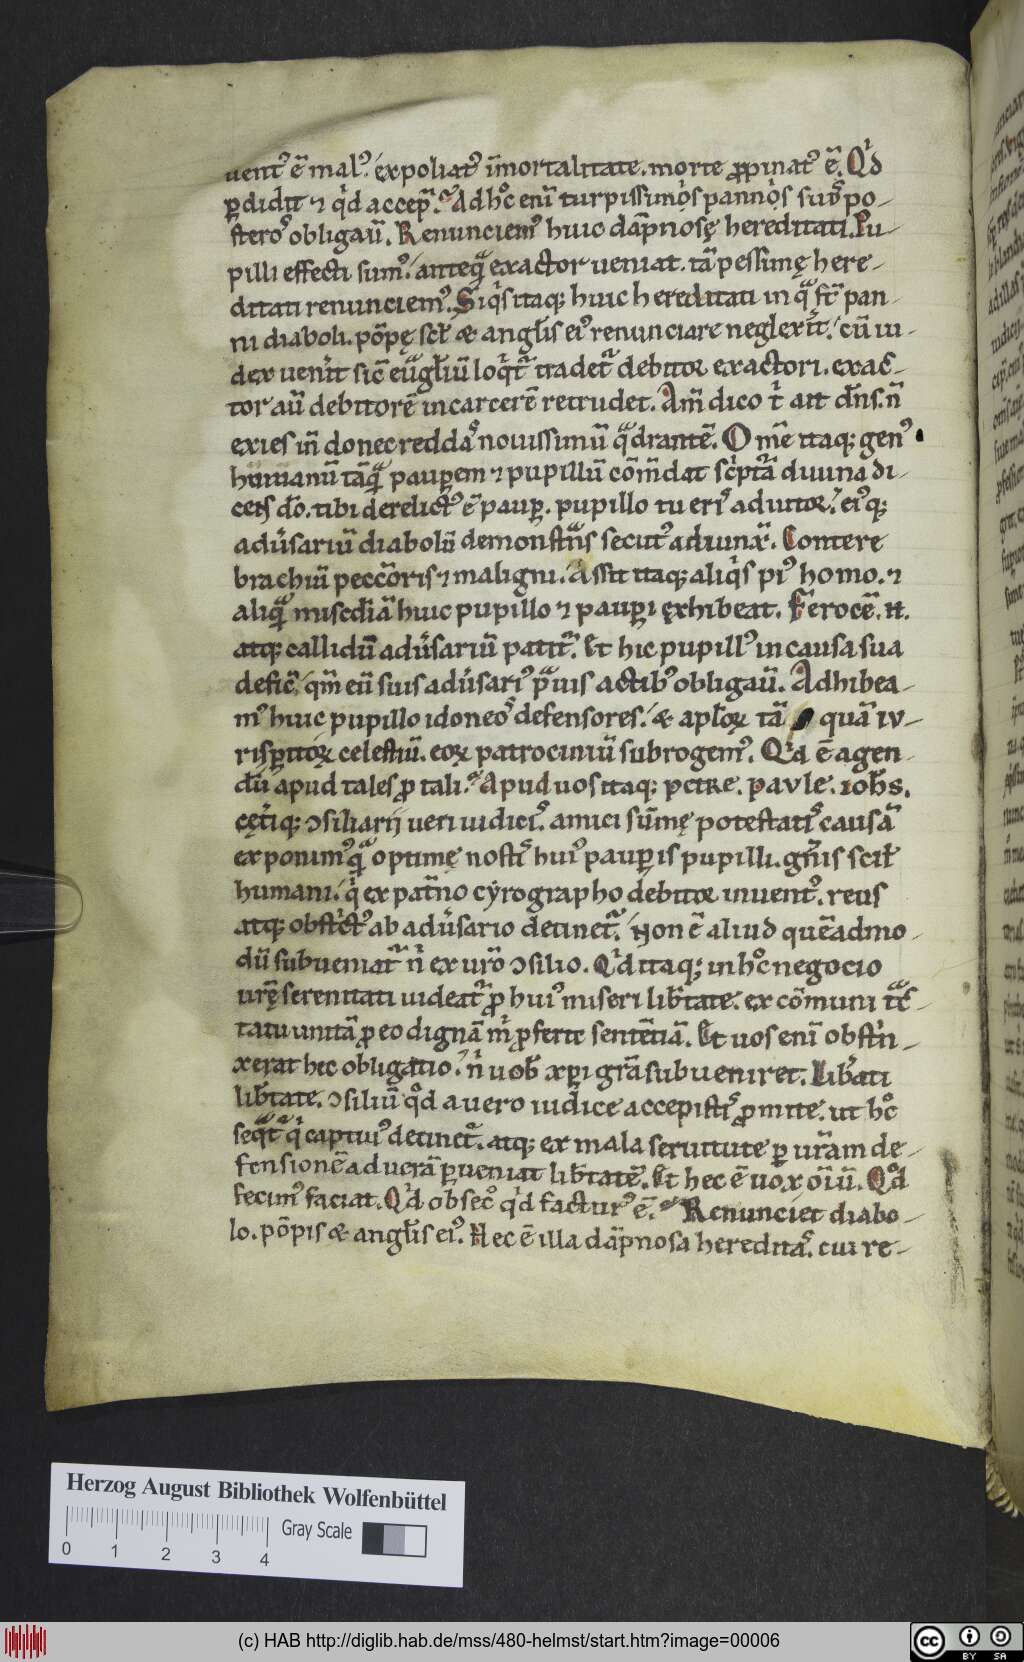 uentꝰ ē malꝰ. expoliatꝰ īmortalitate. morte ꝓpinatꝰ ē. Qͥd
ꝑdidit ⁊ qͥd accep̄. Ad hͦc enī turpissimͦs pannͦs sud̾ po-
steroˢ obligauͥ. Renunciemꝰ huic dāpnosę hereditati. Pu-
pilli effecti sumꝰ. anteqͣ exactor ueniat. tā pessimę here-
ditati renunciemꝰ. Siqͥs itaqꝫ huic hereditati in qͣ st̄ pan-
ni diaboli. pōpę scł & angłis eiꝰ renunciare neglexͥit. cū iu-
dex uenͥit sic̄ euͣgłiū loqͥt᷑ tradet᷑ debitor exactori. exac-
tor aū debitorē in carcerē retrudet. Am̄ dico tͥ ait dn̄s. n̄
exies in̄ donec reddaˢ nouissimū qͣdrantē. O mē itaqꝫ genꝰ
humanū tāqͣ pauꝑem ⁊ pupillū cōm̄dat scͥptͣa diuina di-
cens dō. tibi derelictꝰ ē pauꝑ. pupillo tu eriˢ adiutor. eiꝰqꝫ
adu̾sariū diabolū demonstͣns secutꝰ adiunx̄. Contere
brachiū peccͦoris ⁊ maligni. Assit itaqꝫ aliqͥs piꝰ homo. ⁊
aliqͣ misedͥiā huic pupillo ⁊ pauꝑi ęxhibeat. Ferocē. n.
atqꝫ callidū adu̾sariū patit᷑. Et hic pupillꝰ in causa sua
deficͥ. qm̄ eū suis adu̾sariꝰ pͣuis actibꝰ obligauͥ. Adhibea-
mꝰ huic pupillo idoneoˢ defensores. & apłoꝝ tā quā iu-
risꝑitoꝝ celestiū. eoꝝ patrociniū subrogemꝰ. Qͥd ē agen
dū apud tales ꝓ tali. Apud uos itaqꝫ petre. pavle. iohs.
cętͥiqꝫ ↄsiliarij ueri iudiciˢ. amici sūmę potestatiˢ causā
exponimꝰ qͣ optimę nostiˢ huiꝰ pauꝑis pupilli. gn̄is scił
humani. qͥ ex pat̄no cẏrographo debitor inuentꝰ. reus
atqꝫ obstͥctꝰ ab adu̾sario detinet᷑. Non ē aliud quēadmo-
dū subueniat᷑ nͥ ex urͦo ↄsilio. Qͥd itaqꝫ in hͦc negocio
urę̄ serenitati uideat᷑ ꝓ huiꝰ miseri lib̾tate. ex cōmuni tͣc-
tatu unitā ꝓ eo dignā mͥ ꝓferte sentētiā. Et uos enī obstͥn-
xerat hec obligatio. nͥ uob̄ xp̄i gr̄a subueniret. Lib̾ati
lib̾tate. ↄsiliū qͦd a uero iudice accepistiˢ ꝓmite. ut hͦc
seqͣt᷑ qͥ captiuꝰ detinet᷑. atqꝫ ex mala seruitute ꝑ urām de-
fensionē ad uerā ꝑueniat lib̾tatē. Et hec ē uox oīū. Qͦd
fecimꝰ faciat. Qͥd obsecͦ qͥd facturꝰ ē. Renunciet diabo-
lo. pōpis & angłis eiꝰ. Nec ē illa dāpnosa hereditaˢ. cui re-
Herzog August Bibliothek Wolfenbüttel
Gray Scale
0 1 2 3 4
(c) HAB http://diglib.hab.de/mss/480-helmst/start.htm?image=00006
cc BY SA